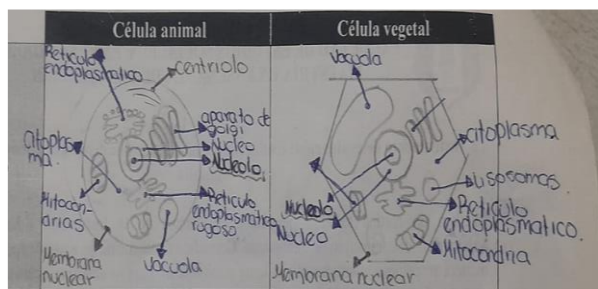 Célula animal
Célula vegetal
Reticulo
endoplasmatico
centriolo
aparato de
golgi
Nucleo
Nucleolo
citoplas
ma.
Mitocon-
drias
Reticulo
endoplasmatico
rugoso
Membrana
nuclear
vacuola
vacuola
citoplasma
Lisosomas.
Reticulo
endoplasmatico.
Mitocondria
Nucleolo
Nucleo
Membrana nuclear